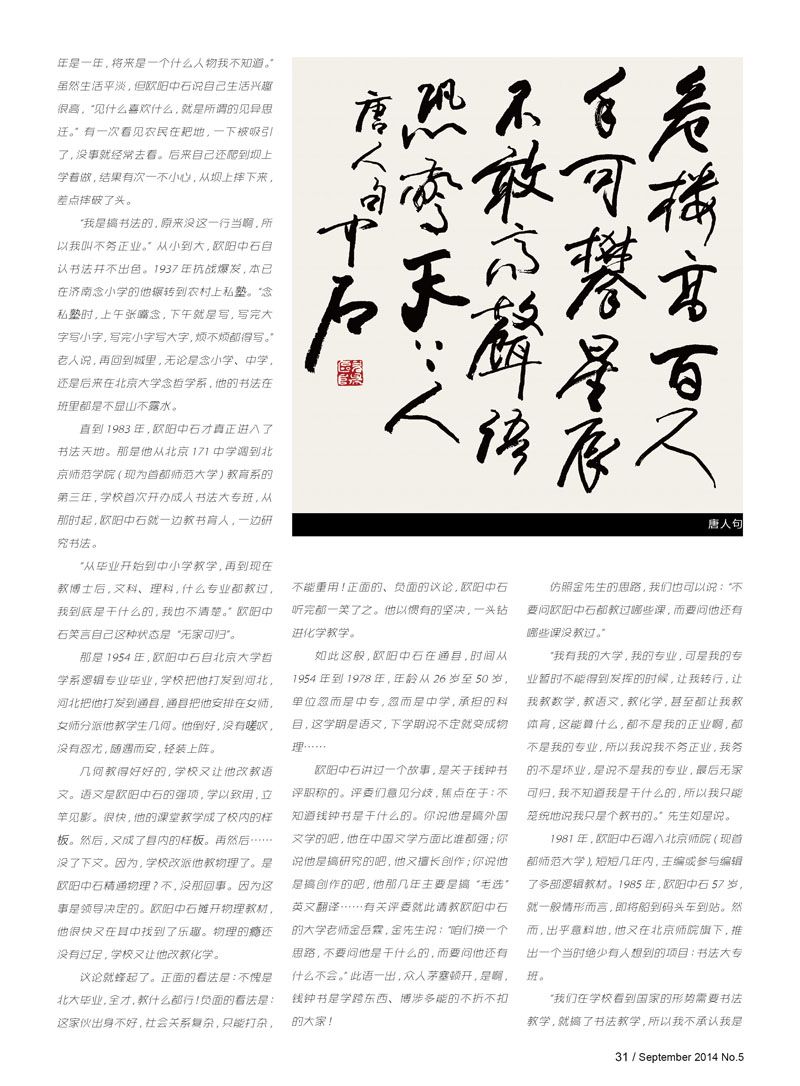 年是一年，将来是一个什么人物我不知道。”
虽然生活平淡，但欧阳中石说自己生活兴趣
很高，“见什么喜欢什么，就是所谓的见异思
迁。”有一次看见农民在耙地，一下被吸引
了，没事就经常去看。后来自己还爬到坝上
学着做，结果有次一不小心，从坝上摔下来，
差点摔破了头。
“我是搞书法的，原来没这一行当啊，所
以我叫不务正业。”从小到大，欧阳中石自
认书法并不出色。1937年抗战爆发，本已
在济南念小学的他辗转到农村上私塾。“念
私塾时，上午张嘴念，下午就是写，写完大
字写小字，写完小字写大字，烦不烦都得写。”
老人说，再回到城里，无论是念小学、中学，
还是后来在北京大学念哲学系，他的书法在
班里都是不显山不露水。
直到1983年，欧阳中石才真正进入了
书法天地。那是他从北京171中学调到北
京师范学院（现为首都师范大学）教育系的
第三年，学校首次开办成人书法大专班，从
那时起，欧阳中石就一边教书育人，一边研
究书法。
“从毕业开始到中小学教学，再到现在
教博士后，文科、理科，什么专业都教过，
我到底是干什么的，我也不清楚。”欧阳中
石笑言自己这种状态是“无家可归”。
那是1954年，欧阳中石自北京大学哲
学系逻辑专业毕业，学校把他打发到河北，
河北把他打发到通县，通县把他安排在女师，
女师分派他教学生几何。他倒好，没有嗟叹，
没有怨尤，随遇而安，轻装上阵。
几何教得好好的，学校又让他改教语
文。语文是欧阳中石的强项，学以致用，立
竿见影。很快，他的课堂教学成了校内的样
板。然后，又成了县内的样板。再然后……
没了下文。因为，学校改派他教物理了。是
欧阳中石精通物理？不，没那回事。因为这
事是领导决定的。欧阳中石摊开物理教材，
他很快又在其中找到了乐趣。物理的瘾还
没有过足，学校又让他改教化学。
议论就蜂起了。正面的看法是：不愧是
北大毕业，全才，教什么都行！负面的看法是：
这家伙出身不好，社会关系复杂，只能打杂，
危楼高百尺
手可攀星辰
不敢高聲語
恐驚天上人
唐人句中石
唐人句
不能重用！正面的、负面的议论，欧阳中石
听完都一笑了之。他以惯有的坚决，一头钻
进化学教学。
如此这般，欧阳中石在通县，时间从
1954年到1978年，年龄从26岁至50岁，
单位忽而是中专，忽而是中学，承担的科
目，这学期是语文，下学期说不定就变成物
理……
欧阳中石讲过一个故事，是关于钱钟书
评职称的。评委们意见分歧，焦点在于：不
知道钱钟书是干什么的。你说他是搞外国
文学的吧，他在中国文学方面比谁都强；你
说他是搞研究的吧，他又擅长创作；你说他
是搞创作的吧，他那几年主要是搞“毛选”
英文翻译……有关评委就此请教欧阳中石
的大学老师金岳霖，金先生说：“咱们换一个
思路，不要问他是干什么的，而要问他还有
什么不会。”此语一出，众人茅塞顿开，是啊，
钱钟书是学跨东西、博涉多能的不折不扣
的大家！
仿照金先生的思路，我们也可以说：“不
要问欧阳中石都教过哪些课，而要问他还有
哪些课没教过。”
“我有我的大学，我的专业，可是我的专
业暂时不能得到发挥的时候，让我转行，让
我教数学，教语文，教化学，甚至都让我教
体育，这能算什么，都不是我的正业啊，都
不是我的专业，所以我说我不务正业，我务
的不是坏业，是说不是我的专业，最后无家
可归，我不知道我是干什么的，所以我只能
笼统地说我只是个教书的。”先生如是说。
1981年，欧阳中石调入北京师院（现首
都师范大学），短短几年内，主编或参与编辑
了多部逻辑教材。1985年，欧阳中石57岁，
就一般情形而言，即将船到码头车到站。然
而，出乎意料地，他又在北京师院旗下，推
出一个当时绝少有人想到的项目：书法大专
班。
“我们在学校看到国家的形势需要书法
教学，就搞了书法教学，所以我不承认我是
31 / September 2014 No.5